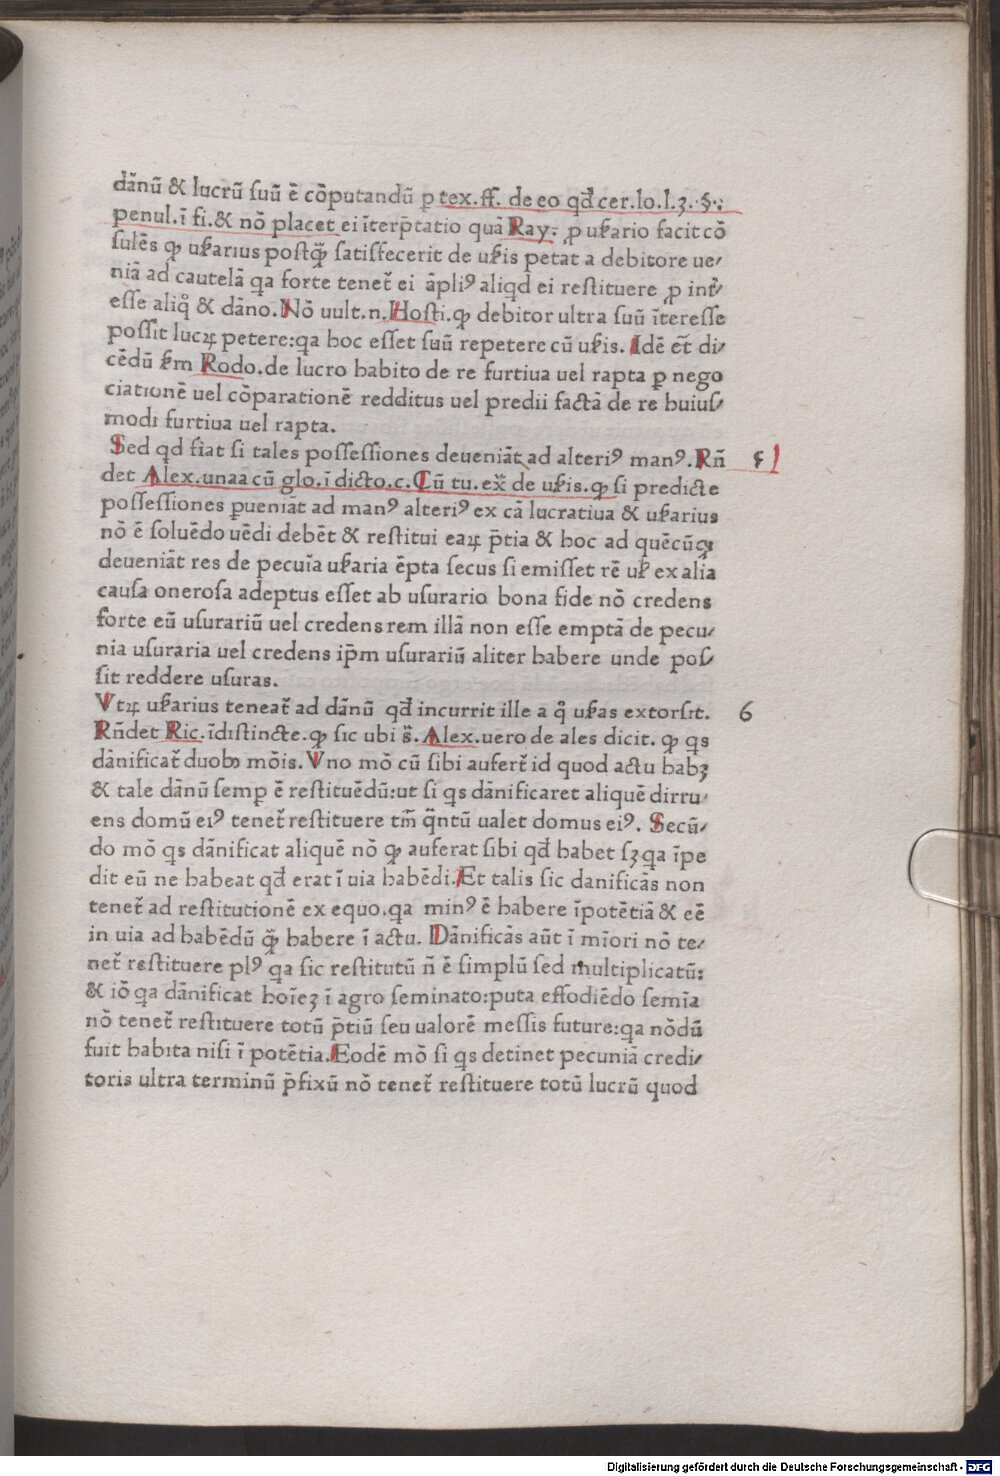 dãnũ & lucrũ ſuũ ẽ cõputandũ ꝑ tex. ff. de eo qđ cer. lo. l. 3. §.
penul. ĩ fi. & nõ placet ei ĩterp̃tatio quã Ray. ꝓ uẜario facit cõ
ſulẽs ꝙ uẜarius poſtq̃ ſatiſfecerit de uẜis petat a debitore ue/
niã ad cautelã qa forte tenet̃ ei ãpliꝰ aliqd ei reſtituere ꝓ int̃/
eſſe aliq̊ & dãno. Nõ uult. n. Hoſti. ꝙ debitor ultra ſuũ ĩtereſſe
poſſit lucꝝ petere: qa hoc eſſet ſuũ repetere cũ uẜis. Idẽ et̃ di/
cẽdũ ẜm Rodo. de lucro habito de re furtiua uel rapta ꝑ nego
ciationẽ uel cõparationẽ redditus uel predii factã de re huiuſ/
modi furtiua uel rapta.
Sed qd fiat ſi tales poſſeſſiones deueniãt ad alteriꝰ manꝰ. Rñ 5
det Alex. una a cũ glo. ĩ dicto. c. Cũ tu. ex̃ de uẜis. ꝙ ſi predicte
poſſeſſiones ꝑueniãt ad manꝰ alteriꝰ ex cã lucratiua & uẜarius
nõ ẽ ſoluẽdo uẽdi debẽt & reſtitui eaꝝ p̃tia & hoc ad quẽcũqꝫ
deueniãt res de pecuĩa uẜaria ẽpta ſecus ſi emiſſet rẽ uł ex alia
cauſa oneroſa adeptus eſſet ab uſurario bona fide nõ credens
forte eũ uſurariũ uel credens rem illã non eſſe emptã de pecu/
nia uſuraria uel credens ip̃m uſurariũ aliter habere unde poſ/
ſit reddere uſuras.
Vtꝝ uẜarius teneat̃ ad dãnũ qđ incurrit ille a q̊ uẜas extorſit. 6
Rñdet Ric. ĩdiſtincte. ꝙ ſic ubi s̃. Alex. uero de ales dicit. ꝙ qs
dãnificat̃ duobꝰ mõis. Vno mõ cũ ſibi aufert̃ id quod actu habꝫ
& tale dãnũ ſemꝑ ẽ reſtituẽdũ: ut ſi qs dãnificaret aliquẽ dirru/
ens domũ eiꝰ tenet̃ reſtituere tm̃ q̃ntũ ualet domus eiꝰ. Secũ/
do mõ qs dãnificat aliquẽ nõ ꝙ auferat ſibi qđ habet ſꝫ qa ĩpe
dit eũ ne habeat qđ erat ĩ uia habẽdi. Et talis ſic danificãs non
tenet̃ ad reſtitutionẽ ex equo. qa minꝰ ẽ habere ĩ potẽtiã & eẽ
in uia ad habẽdũ q̃ habere ĩ actu. Dãnificãs aũt ĩ mĩori nõ te/
net̃ reſtituere plꝰ qa ſic reſtitutũ ñ ẽ ſimplũ ſed multiplicatũ:
& iõ qa dãnificat hoĩeꝫ ĩ agro ſeminato: puta effodiẽdo ſemĩa
nõ tenet̃ reſtituere totũ p̃tiũ ſeu ualorẽ meſſis future: qa nõdũ
fuit habita niſi ĩ potẽtia. Eodẽ mõ ſi qs detinet pecuniã credi/
toris ultra terminũ p̃fixũ nõ tenet̃ reſtituere totũ lucrũ quod
Digitalisierung gefördert durch die Deutsche Forschungsgemeinschaft - DFG